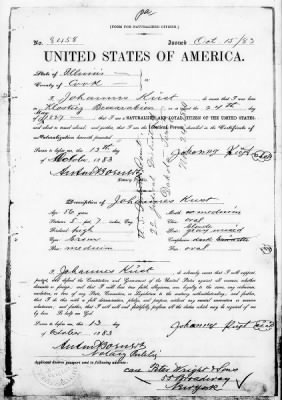 [FORM FOR NATURALIZED CITIZEN.]
No. 8458 Issued Oct 15/83
UNITED STATES OF AMERICA.
State of Illinois
County of Cook
I Johannes Küst, do swear that I was born
in on or about the 24th day
of 1827; that I am a NATURALIZED AND LOYAL CITIZEN OF THE UNITED STATES,
and about to travel abroad; and further, that I am the identical Person described in the Certificate of
Naturalization herewith presented.
Sworn to before me, this 13th day
of October 1883
Johannes Küst
Description of Johannes Küst
Age: 56 years Mouth: medium
Stature: 5 ft. 7 inches, Eng. Chin: oval
Forehead: high Hair: gray mixed
Eyes: brown Complexion: dark
Nose: medium Face: oval
I Johannes Küst, do solemnly swear that I will support,
protect and defend the Constitution and Government of the United States against all enemies, whether
domestic or foreign; and that I will bear true faith, allegiance, and loyalty to the same, any ordinance,
resolution or law of any State, Convention or Legislature to the contrary notwithstanding; and further,
that I do this with a full determination, pledge, and purpose, without any mental reservation or evasion
whatsoever; and further, that I will well and faithfully perform all the duties which may be required of me
by law: So help me God.
Sworn to before me, this 13
October 1883
Johannes Küst
Notary Public
Applicant desires passport sent to following address:
care Peter Wright & Sons
55 Broadway
New York